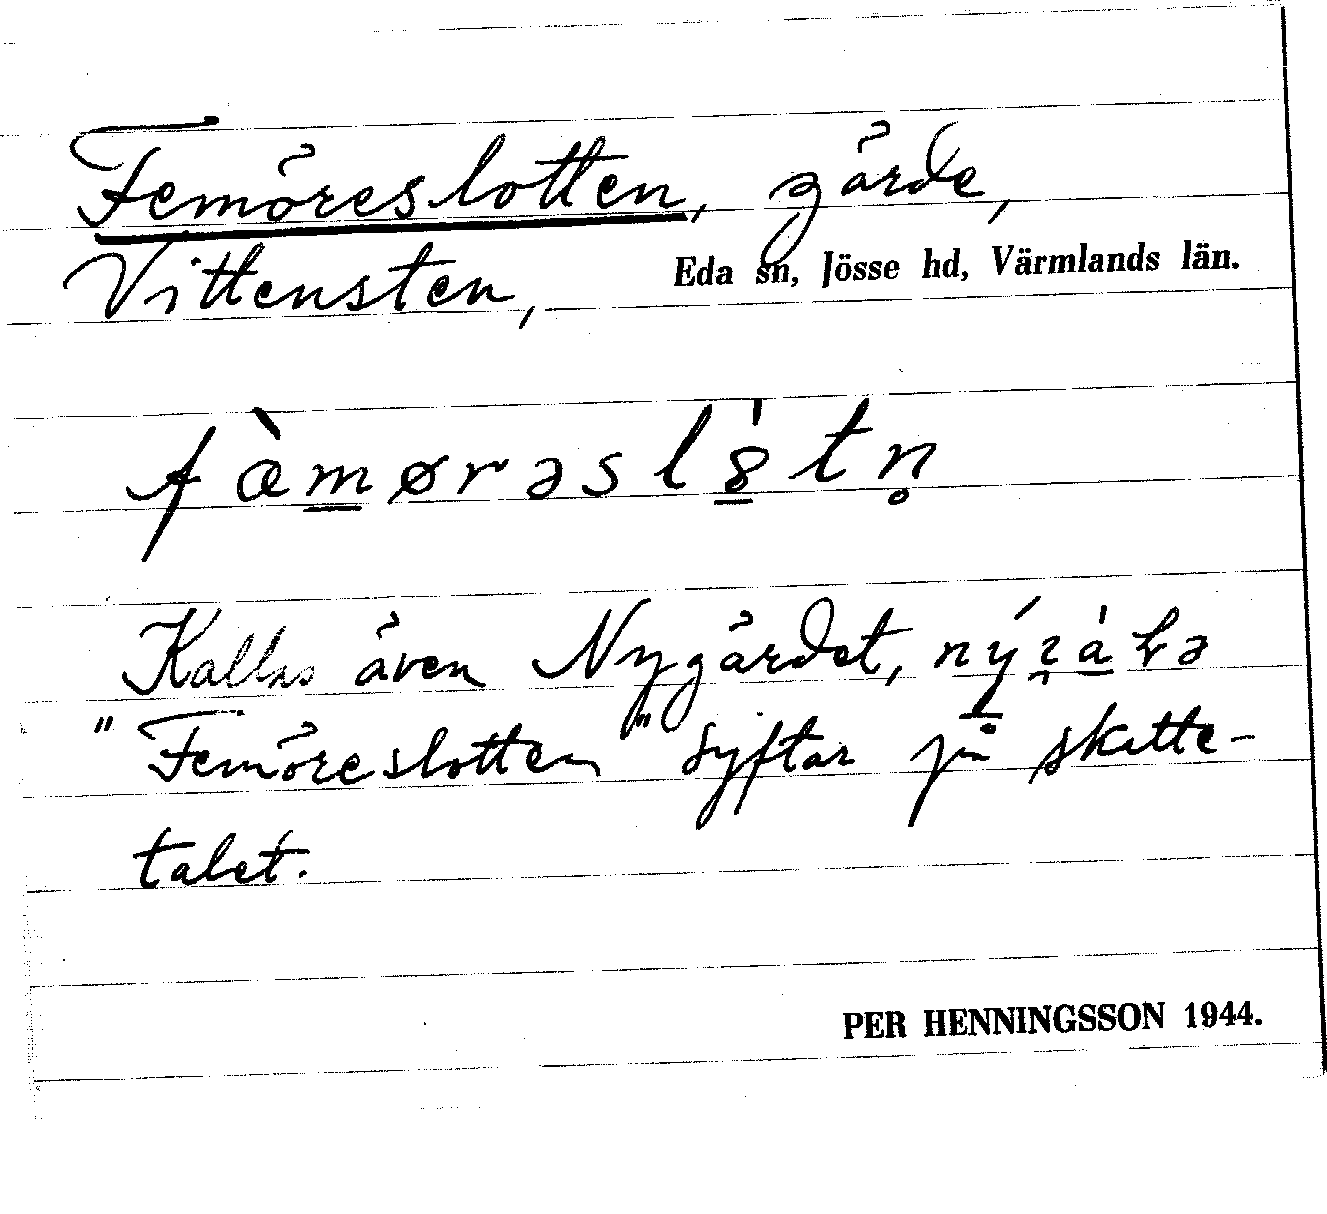 Femöreslotten, gärde,
Vittensten, Eda sn, Jösse hd, Värmlands län.
fæ̀mørəsl8̍tn̥
Kallas även Nygärdet,
"Femöreslotten" syftar på skatte-
talet.
PER HENNINGSSON 1944.